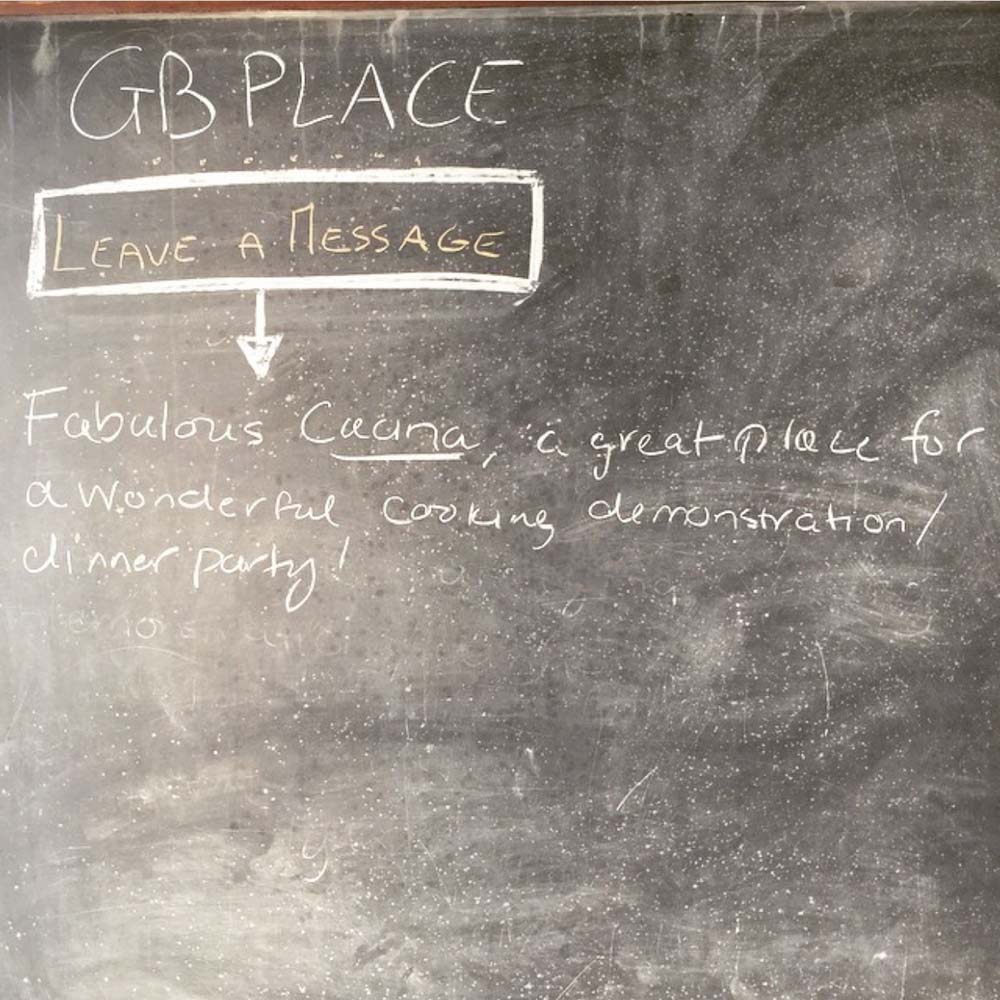 GB PLACE
LEAVE A MESSAGE
Fabulous Cucina, a great place for
a wonderful cooking demonstration/
dinner party!